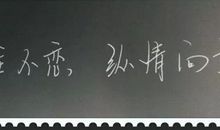 不恋,纵情向